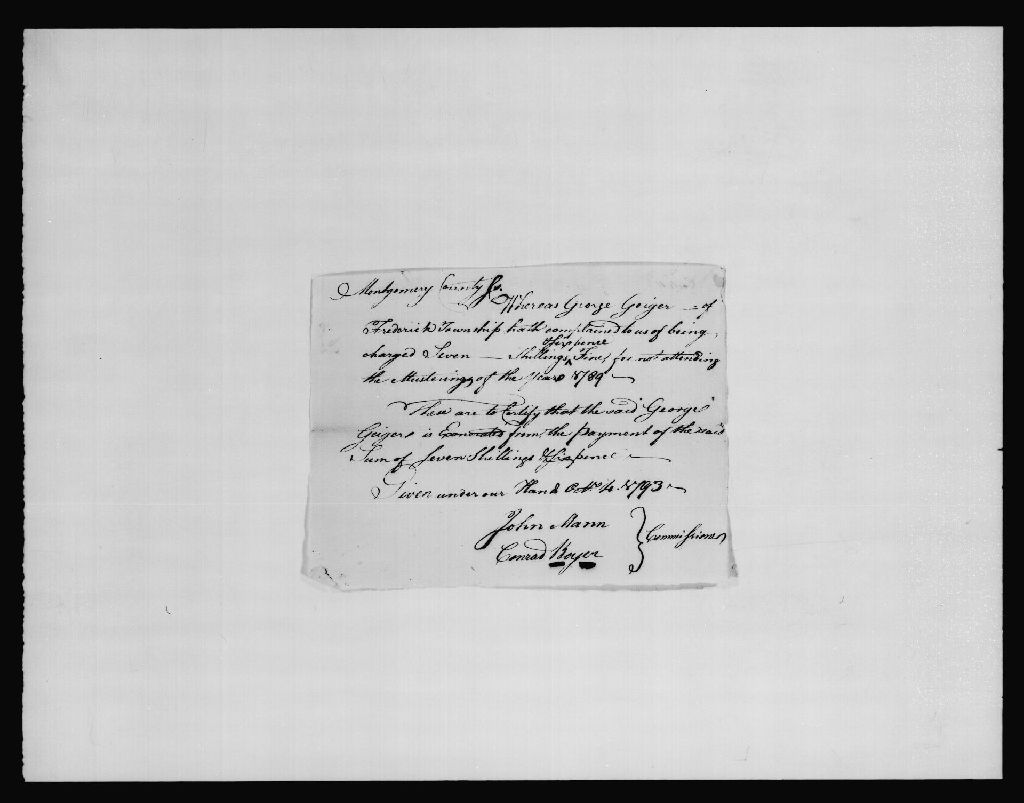 Montgomery County Ss.
Whereas George Geiger — of
Frederick Township hath complained to us of being
charged Seven — Shillings & Sixpence Fine, for not attending
the Musterings of the Year 1789 —
These are to Certify that the said George
Geiger is Exonorated from the payment of the said
Sum of Seven Shillings & Sixpence —
Given under our Hand Octr. 14. 1793 —
John Mann
Conrad Boyer } Commissioners